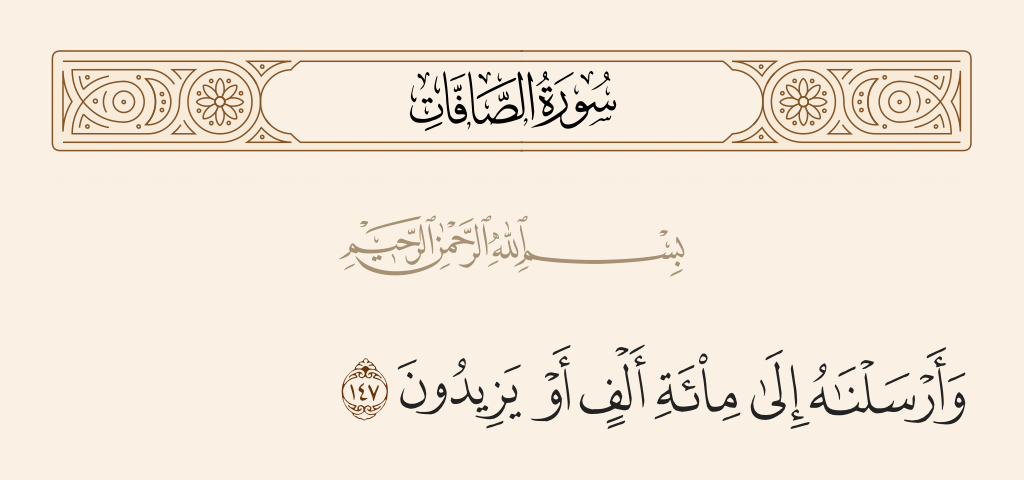 سُورَةُ الصَّافَّاتِ
بِسْمِ ٱللَّهِ ٱلرَّحْمَٰنِ ٱلرَّحِيمِ
وَأَرْسَلْنَٰهُ إِلَىٰ مِا۟ئَةِ أَلْفٍ أَوْ يَزِيدُونَ ١٤٧